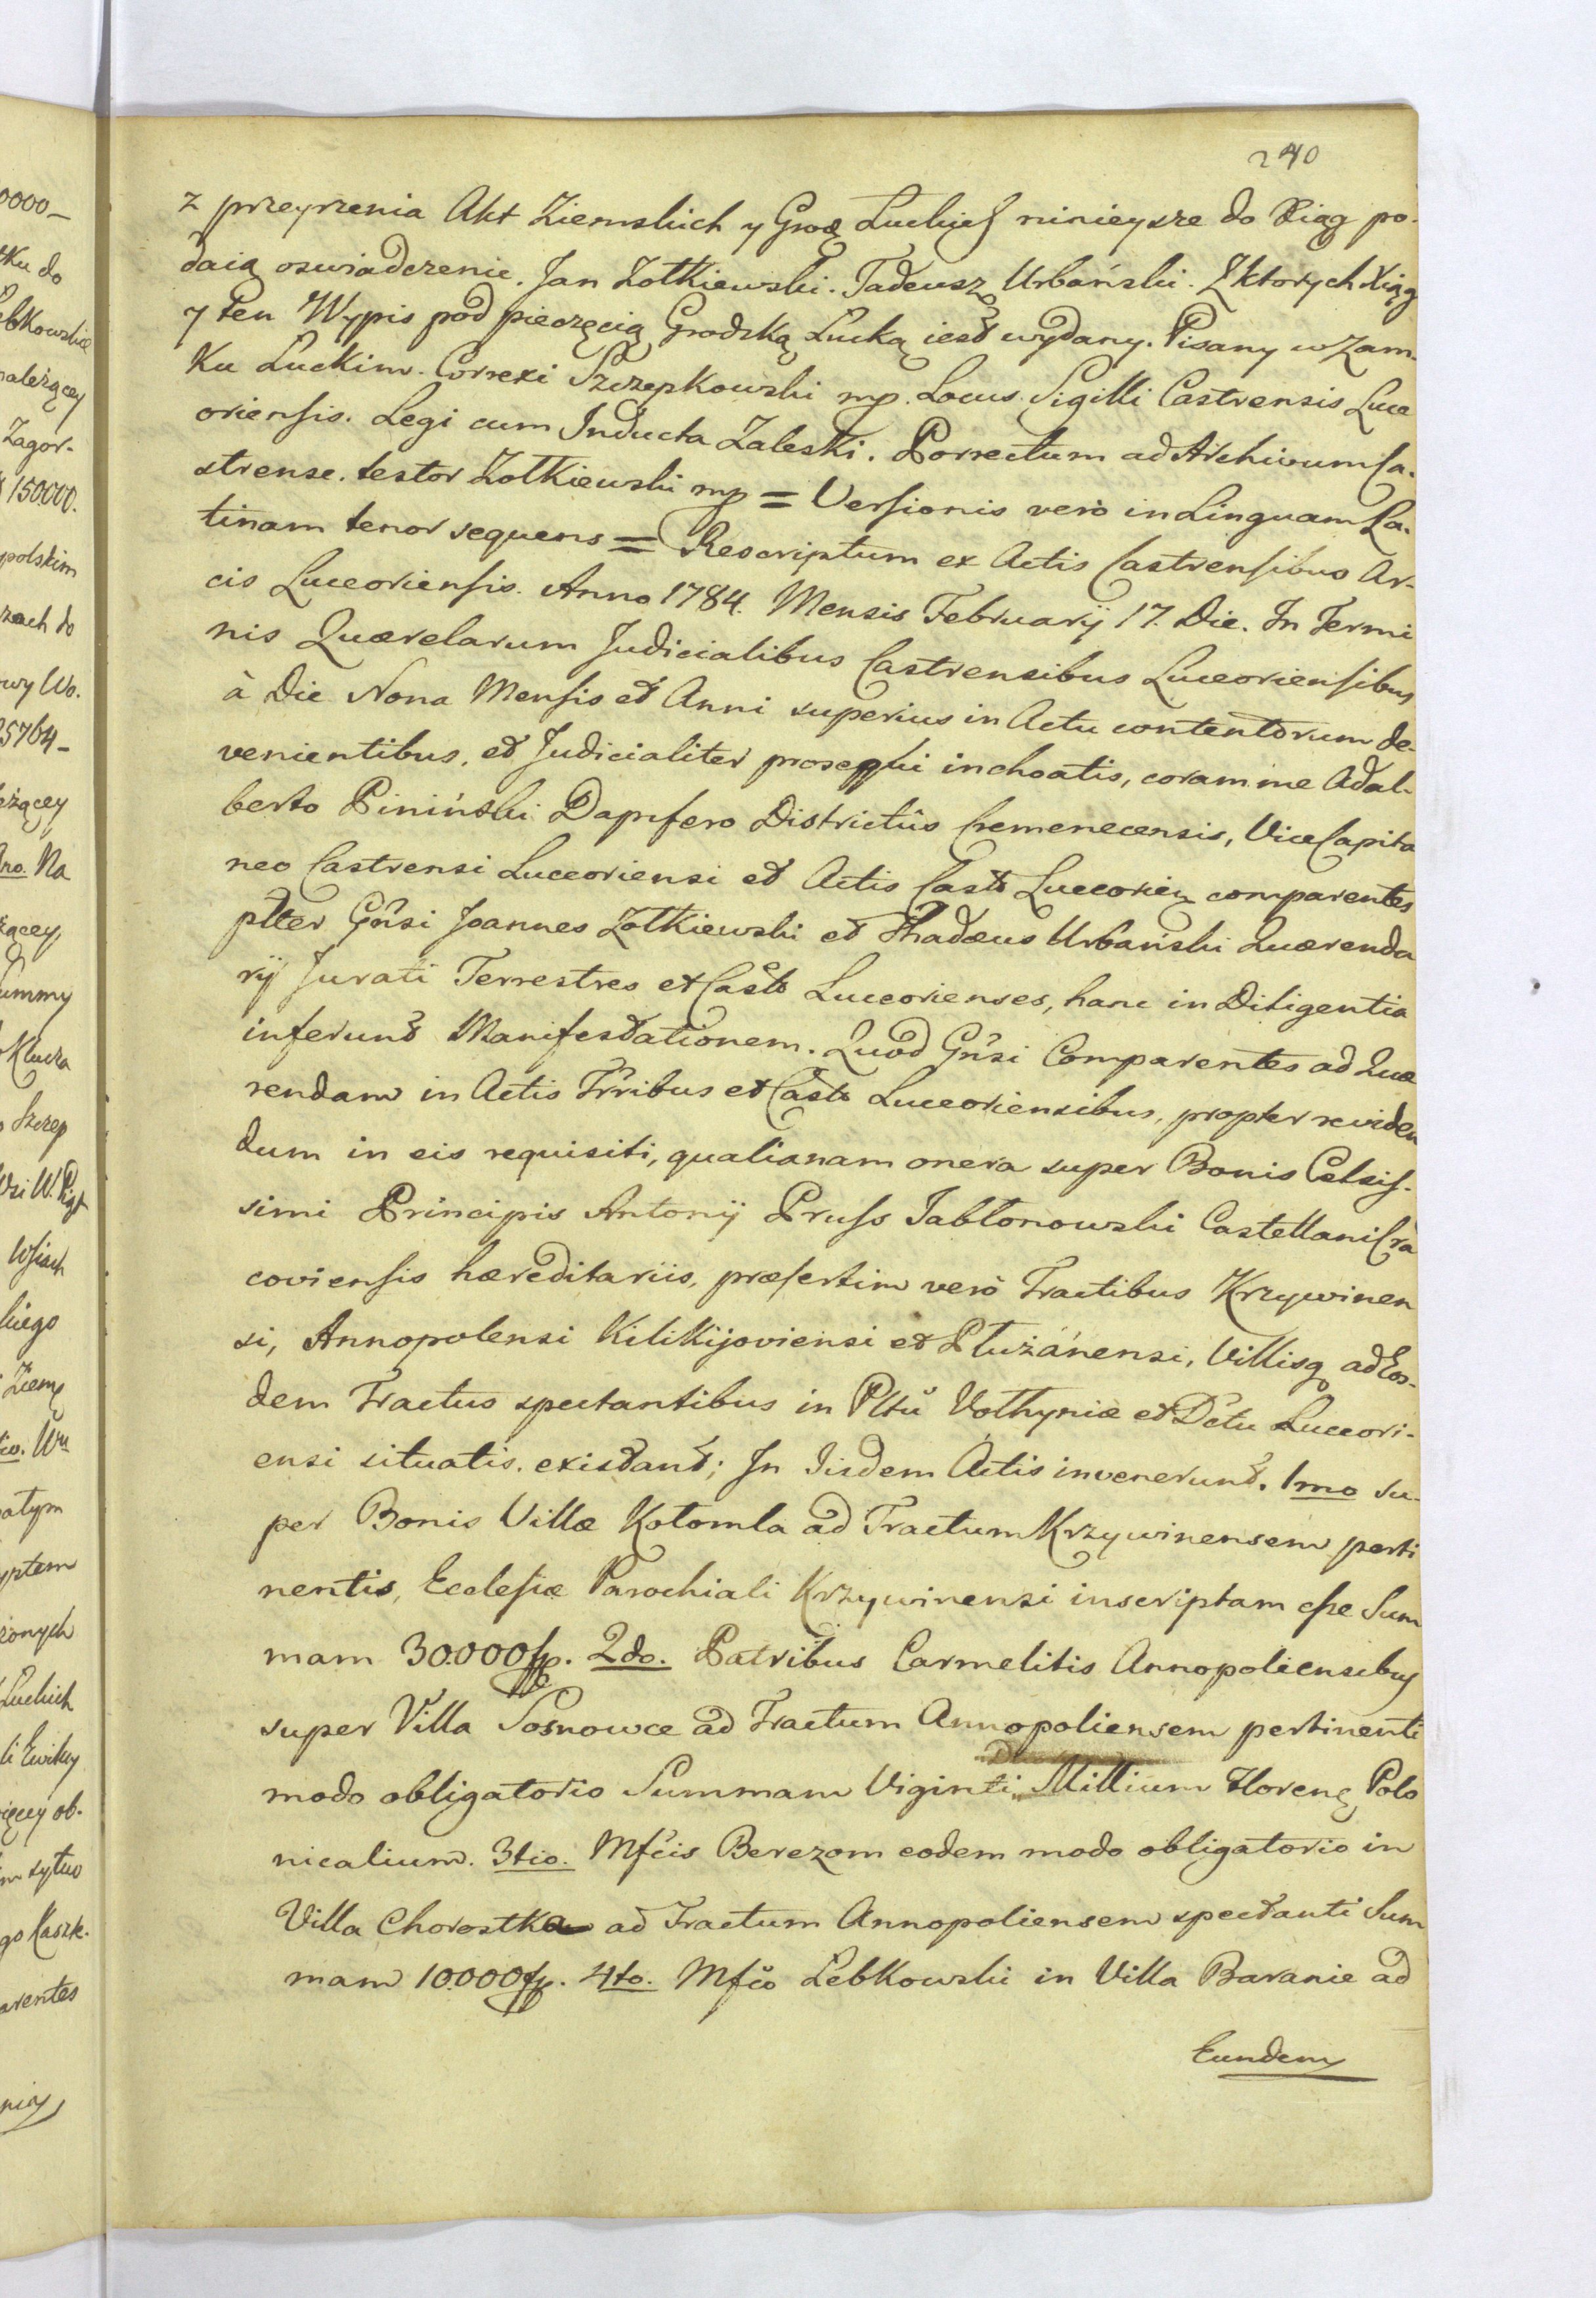 240
z przeyrzenia Akt Ziemskich y Grod Luckich ninieysze do Xiąg po-
daią oswiadczenie. Jan Zołkiewski. Tadeusz Urbański. Z ktorych Xiąg
y ten Wypis pod pieczęcią Grodzką Lucką iest wydany. Pisany w Zam-
ku Luckim. Correxi Szczepkowski mp. Locus Sigilli Castrensis Luce
oriensis. Legi cum Inducta Zaleski. Porrectum ad Archivum Ca-
strense. testor Zołkiewski mp = Versionis verò in Linguam La-
tinam tenor sequens = Rescriptum ex Actis Castrensibus Ar-
cis Luceoriensis. Anno 1784. Mensis Februarij 17. Die. In Termi
nis Quærelarum Judicialibus Castrensibus Luceoriensibus
à Die Nona Mensis et Anni superius in Actu contentorum de-
venientibus, et Judicialiter prosequi inchoatis, coram me Adal-
berto Pininski Dapifero Districtûs Cremenecensis, Vice Capita
neo Castrensi Luceoriensi et Actis Castr Luceorien comparentes
plter Gñsi Joannes Zołkiewski et Thadæus Urbański Quærenda
rij Jurati Terrestres et Castr Luceorienses, hanc in Diligentia
inferunt Manifestationem. Quod Gñsi Comparentes ad Quæ
rendam in Actis Trribus et Castr Luceoriensibus, propter reviden
dum in eis requisiti, qualianam onera super Bonis Celsis-
simi Principis Antonij Pruss Jabłonowski Castellani Cra
coviensis hæreditariis, præsertim verò Tractibus Krzywinen
si, Annopolensi Kilikijoviensi et Płużanensi, Villisq ad Eos-
dem Tractus spectantibus in Pltu Vołhyniæ et Dctu Luceori-
ensi situatis. existant; In Iisdem Actis invenerunt. 1mo su-
per Bonis Villæ Kołomla ad Tractum Krzywinensem perti
nentis, Ecclesiæ Parochiali Krzywinensi inscriptam esse Sum
mam 30.000 fp. 2do. Patribus Carmelitis Annopoliensibus
super Villa Sosnowce ad Tractum Annopoliensem pertinenti
modo obligatorio Summam Viginti Millium Floreng Polo
nicalium. 3tio. Mfcis Berezom eodem modo obligatorio in
Villa Chorostka ad Tractum Annopoliensem spectanti Sum
mam 10.000 fp. 4to. Mfco Łebkowski in Villa Baranie ad
Eundem